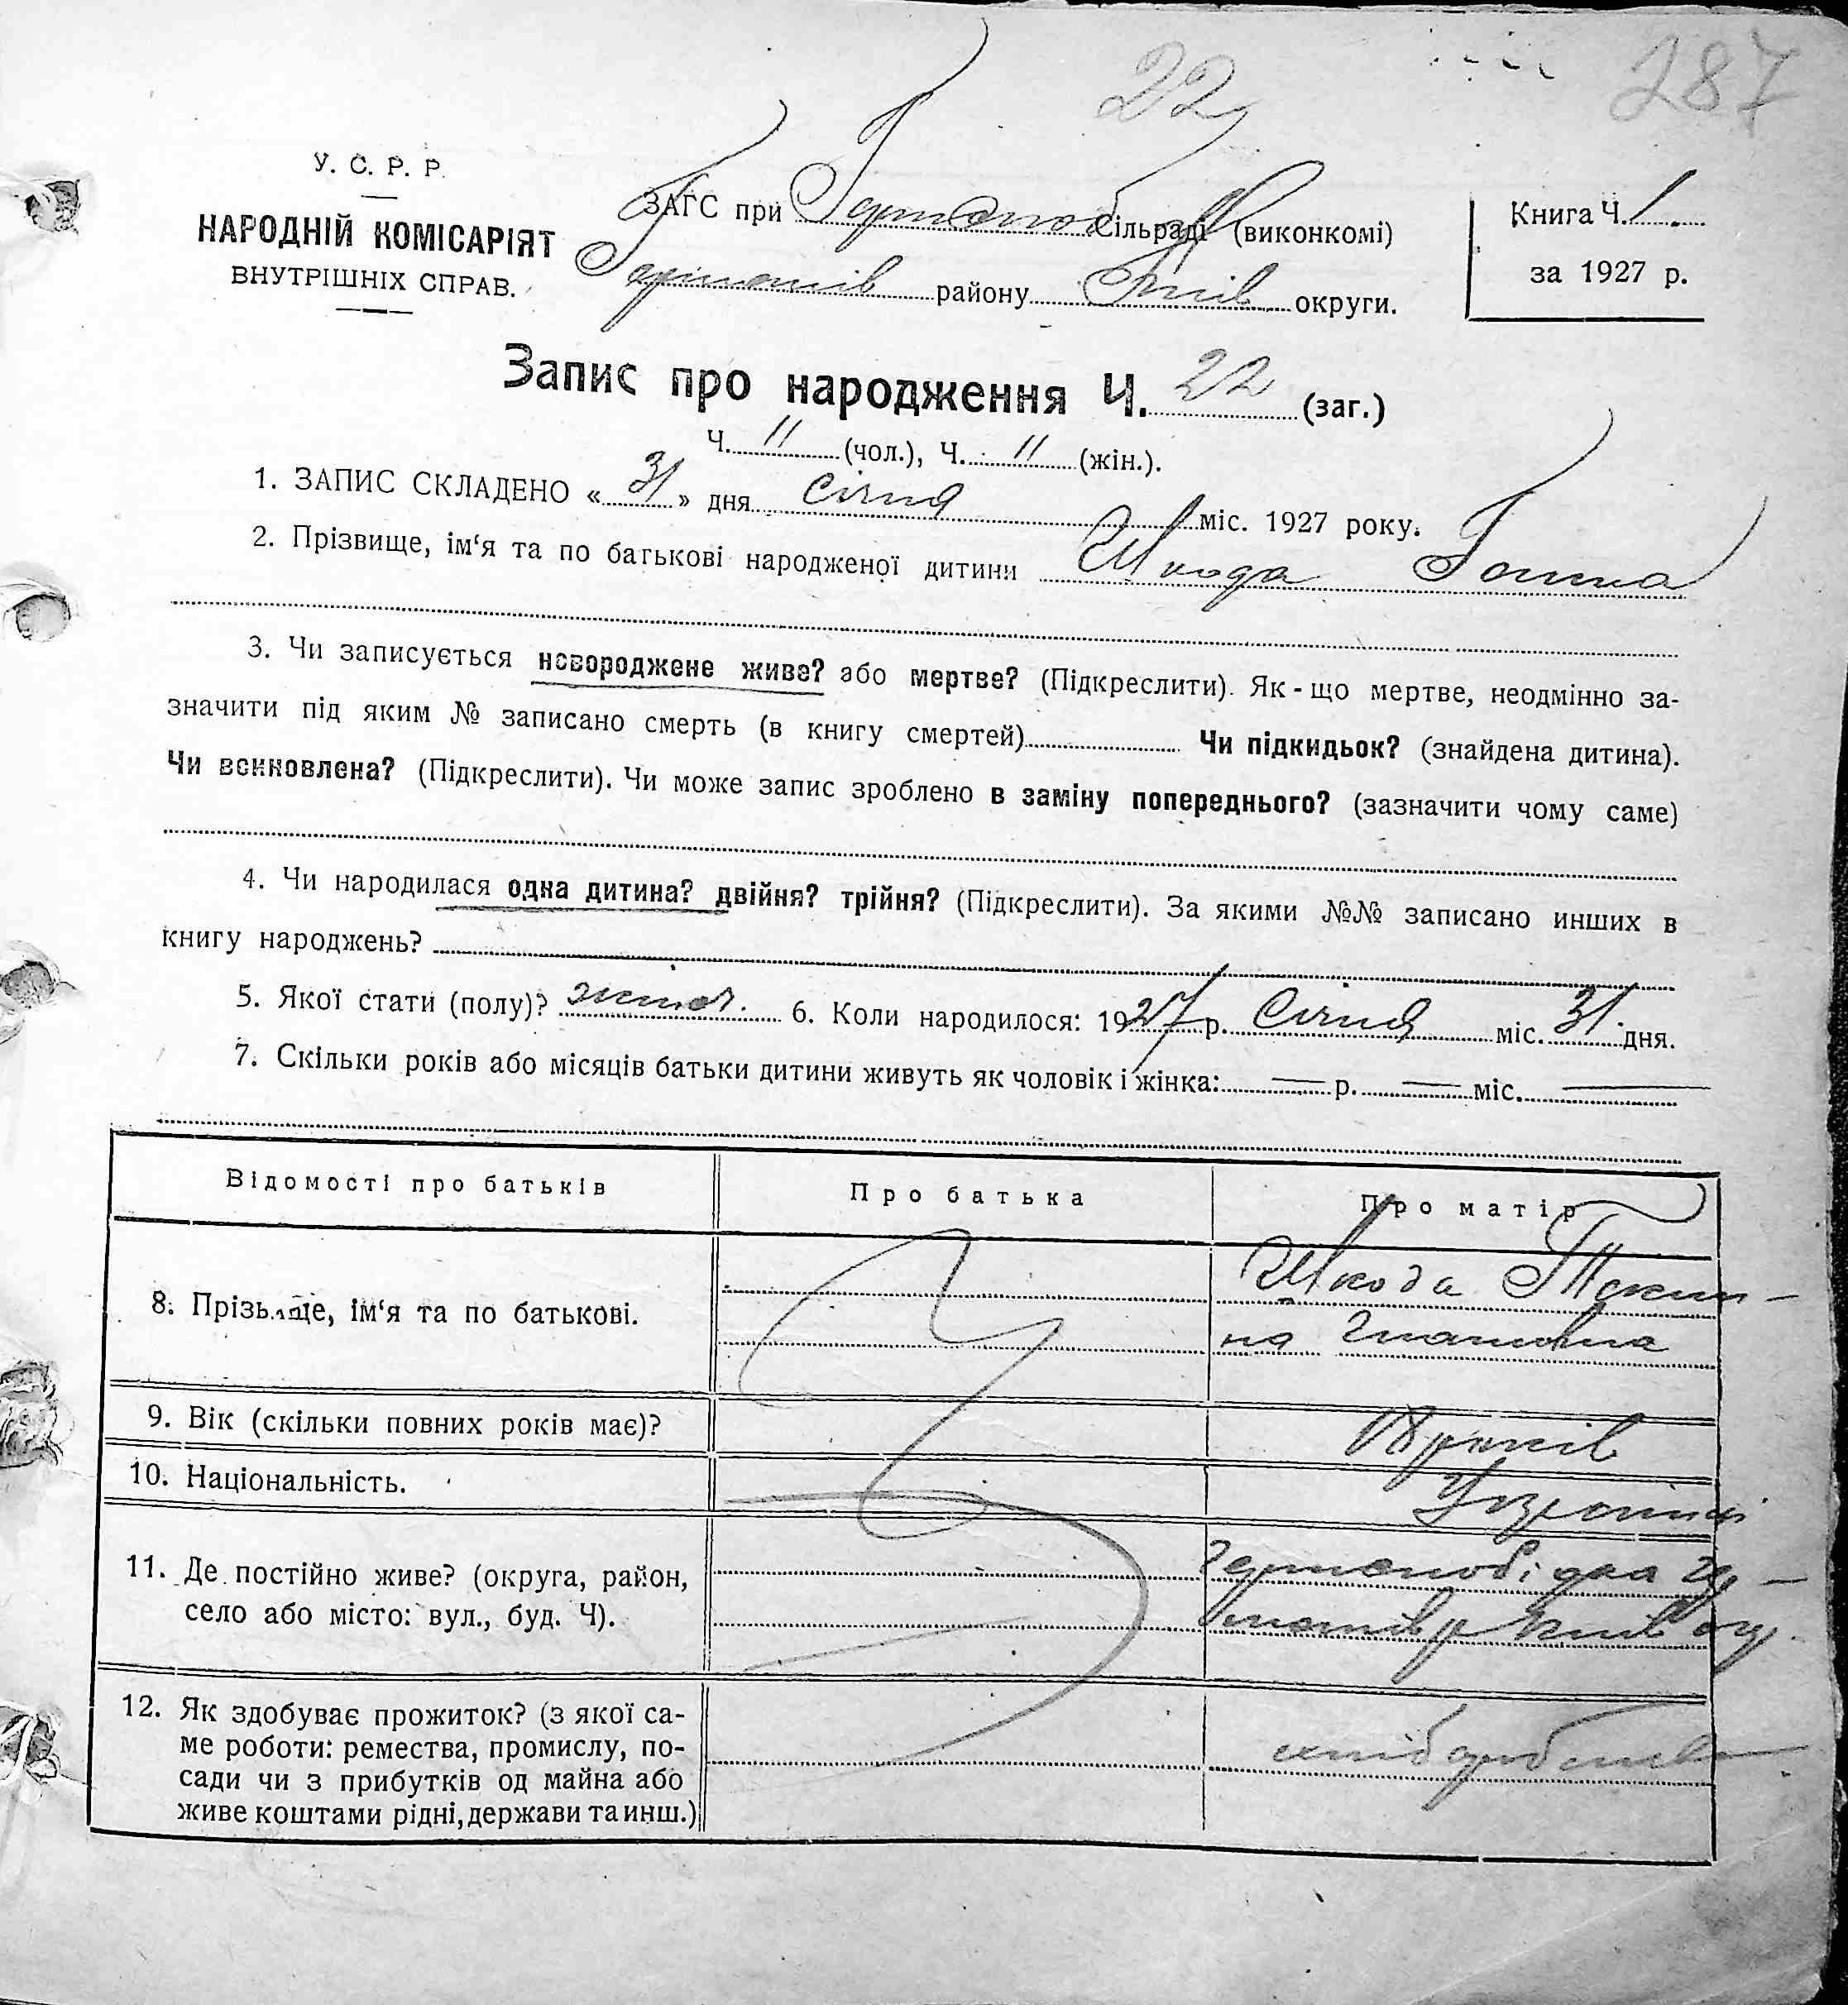 22
287
У. С. Р. Р.
НАРОДНІЙ КОМІСАРІЯТ
ВНУТРІШНІХ СПРАВ.
ЗАГС при сільраді (виконкомі)
району Київ округи.
Книга Ч. 1.
за 1927 р.
Запис про народження Ч. 22 (заг.)
Ч. 11 (чол.), Ч. 11 (жін.).
1. ЗАПИС СКЛАДЕНО « 31 » дня січня міс. 1927 року.
2. Прізвище, ім‘я та по батькові народженої дитини Шкода Ганна
3. Чи записується новороджене живе? або мертве? (Підкреслити). Як-що мертве, неодмінно за-
значити під яким № записано смерть (в книгу смертей) Чи підкидьок? (знайдена дитина).
Чи всиновлена? (Підкреслити). Чи може запис зроблено в заміну попереднього? (зазначити чому саме)
4. Чи народилася одна дитина? двійня? трійня? (Підкреслити). За якими №№ записано инших в
книгу народжень?
5. Якої стати (полу)? жіноч. 6. Коли народилося: 1927 р. Січня міс. 31 дня.
7. Скільки років або місяців батьки дитини живуть як чоловік і жінка: — р. — міс. —
Відомості про батьків
Про батька
Про матір
8. Прізвище, ім‘я та по батькові.
Шкода Текли-
на Гнатовна
9. Вік (скільки повних років має)?
18 років
10. Національність.
Україн
11. Де постійно живе? (округа, район,
село або місто: вул., буд. Ч).
12. Як здобуває прожиток? (з якої са-
ме роботи: ремества, промислу, по-
сади чи з прибутків од майна або
живе коштами рідні, держави та инш.)
хліборобство